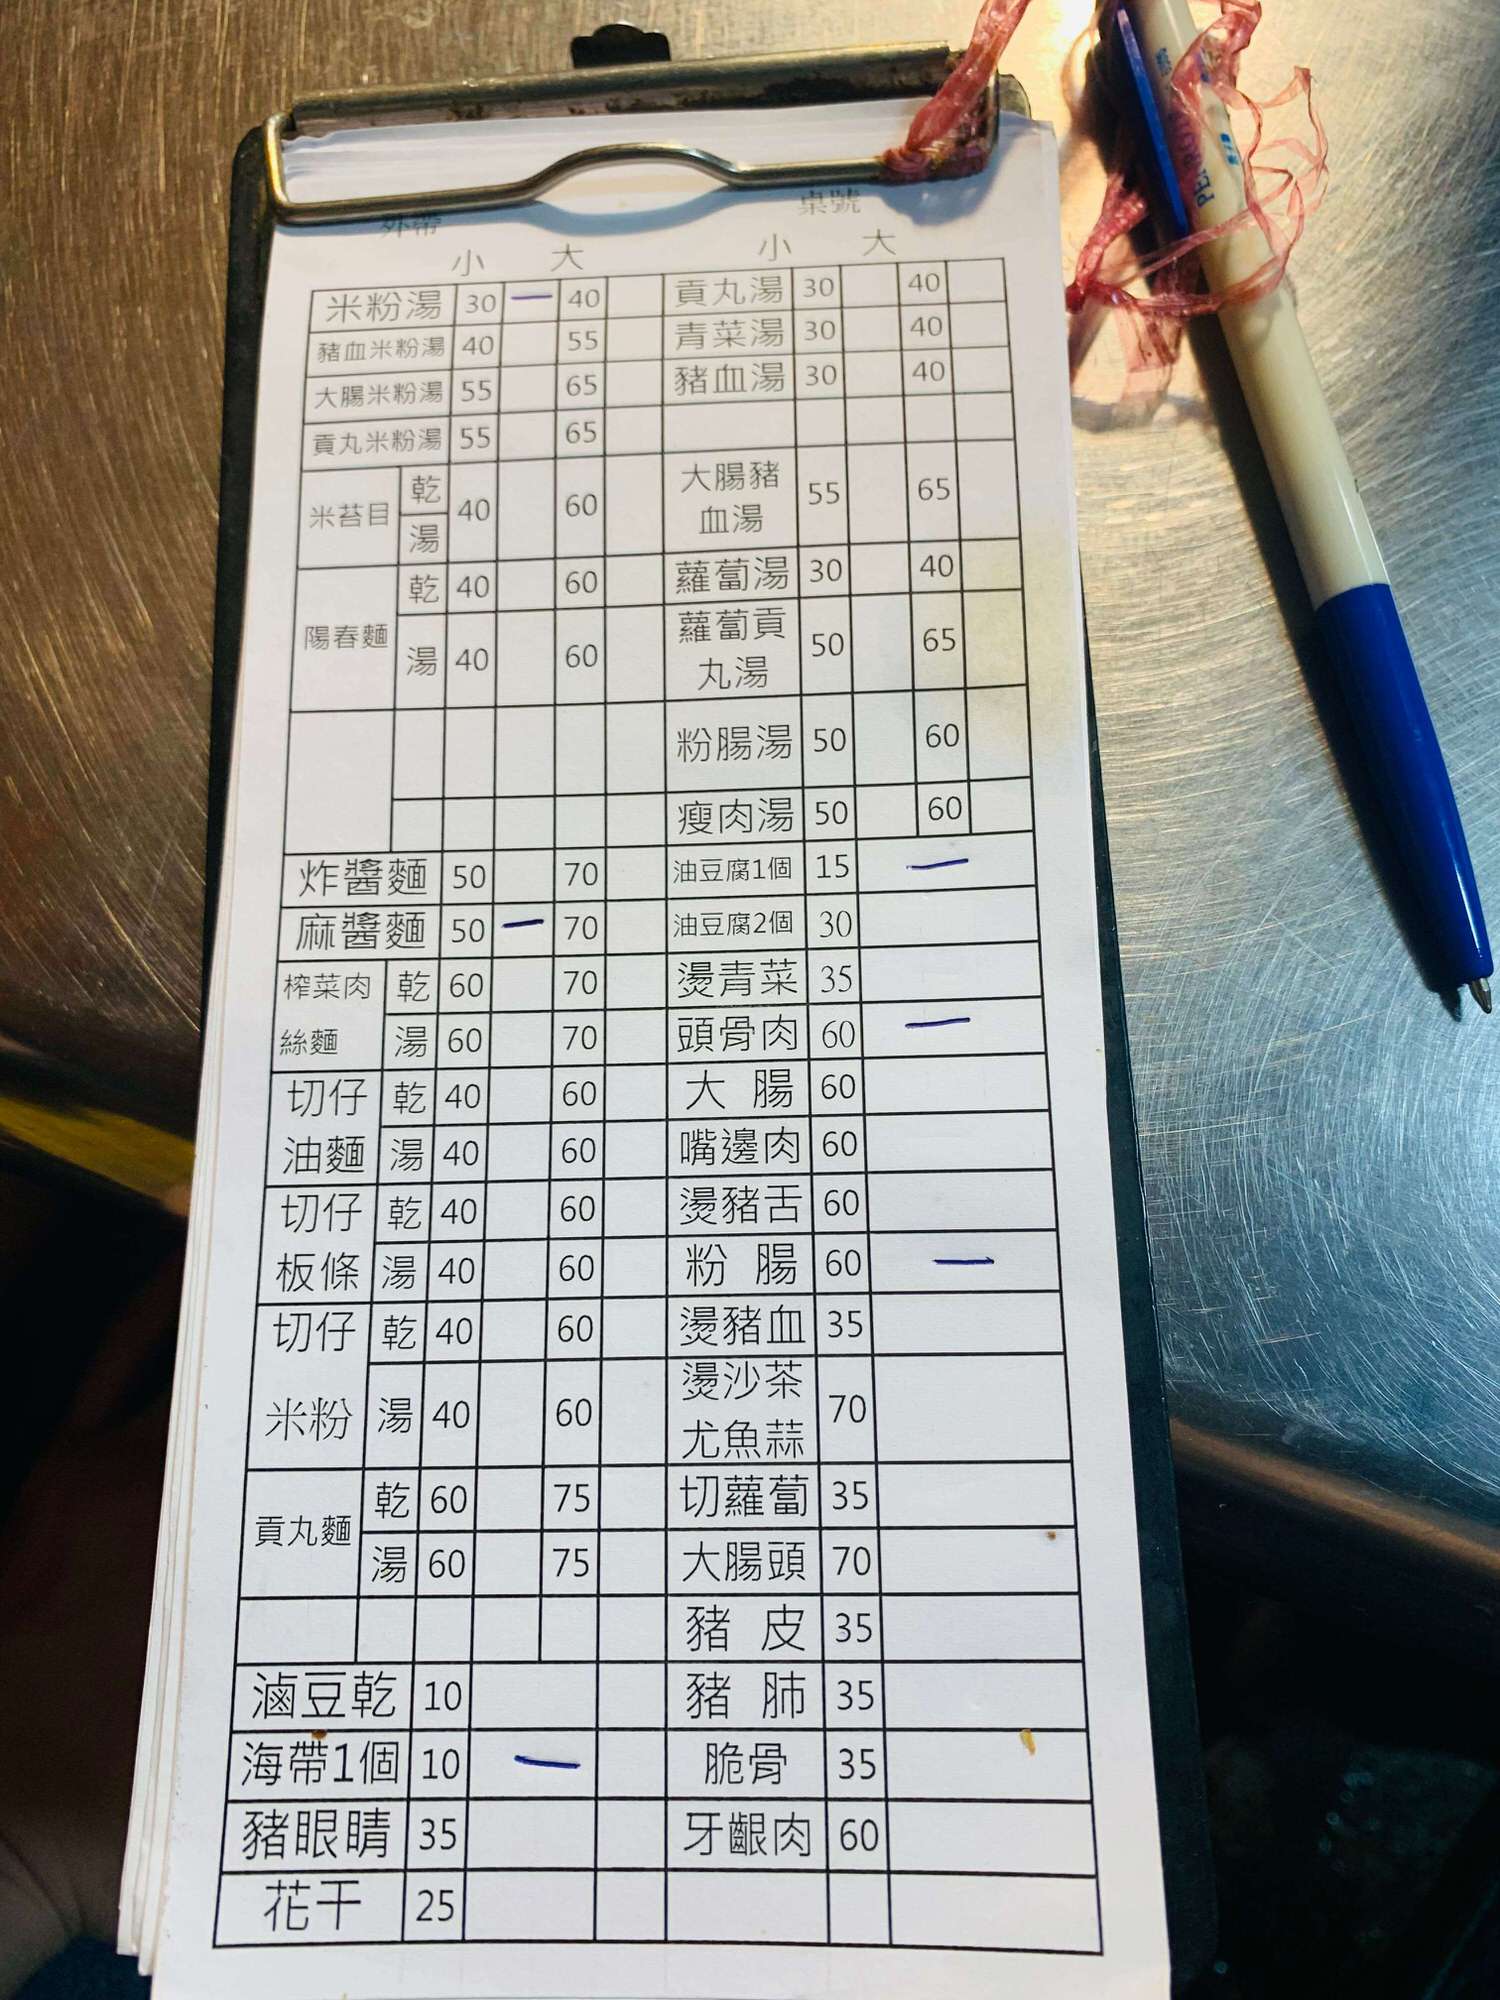 外帶 桌號
小 大 小 大
米粉湯 30 一 40 貢丸湯 30 40
豬血米粉湯 40 55 青菜湯 30 40
大腸米粉湯 55 65 豬血湯 30 40
貢丸米粉湯 55 65
米苔目 乾 湯 40 60 大腸豬血湯 55 65
陽春麵 乾 40 60 蘿蔔湯 30 40
湯 40 60 蘿蔔貢丸湯 50 65
粉腸湯 50 60
瘦肉湯 50 60
炸醬麵 50 70 油豆腐1個 15 一
麻醬麵 50 一 70 油豆腐2個 30
榨菜肉絲麵 乾 60 70 燙青菜 35
湯 60 70 頭骨肉 60 一
切仔油麵 乾 40 60 大腸 60
湯 40 60 嘴邊肉 60
切仔板條 乾 40 60 燙豬舌 60
湯 40 60 粉腸 60 一
切仔米粉 乾 40 60 燙豬血 35
湯 40 60 燙沙茶尤魚蒜 70
貢丸麵 乾 60 75 切蘿蔔 35
湯 60 75 大腸頭 70
豬皮 35
滷豆乾 10 豬肺 35
海帶1個 10 一 脆骨 35
豬眼睛 35 牙齦肉 60
花干 25